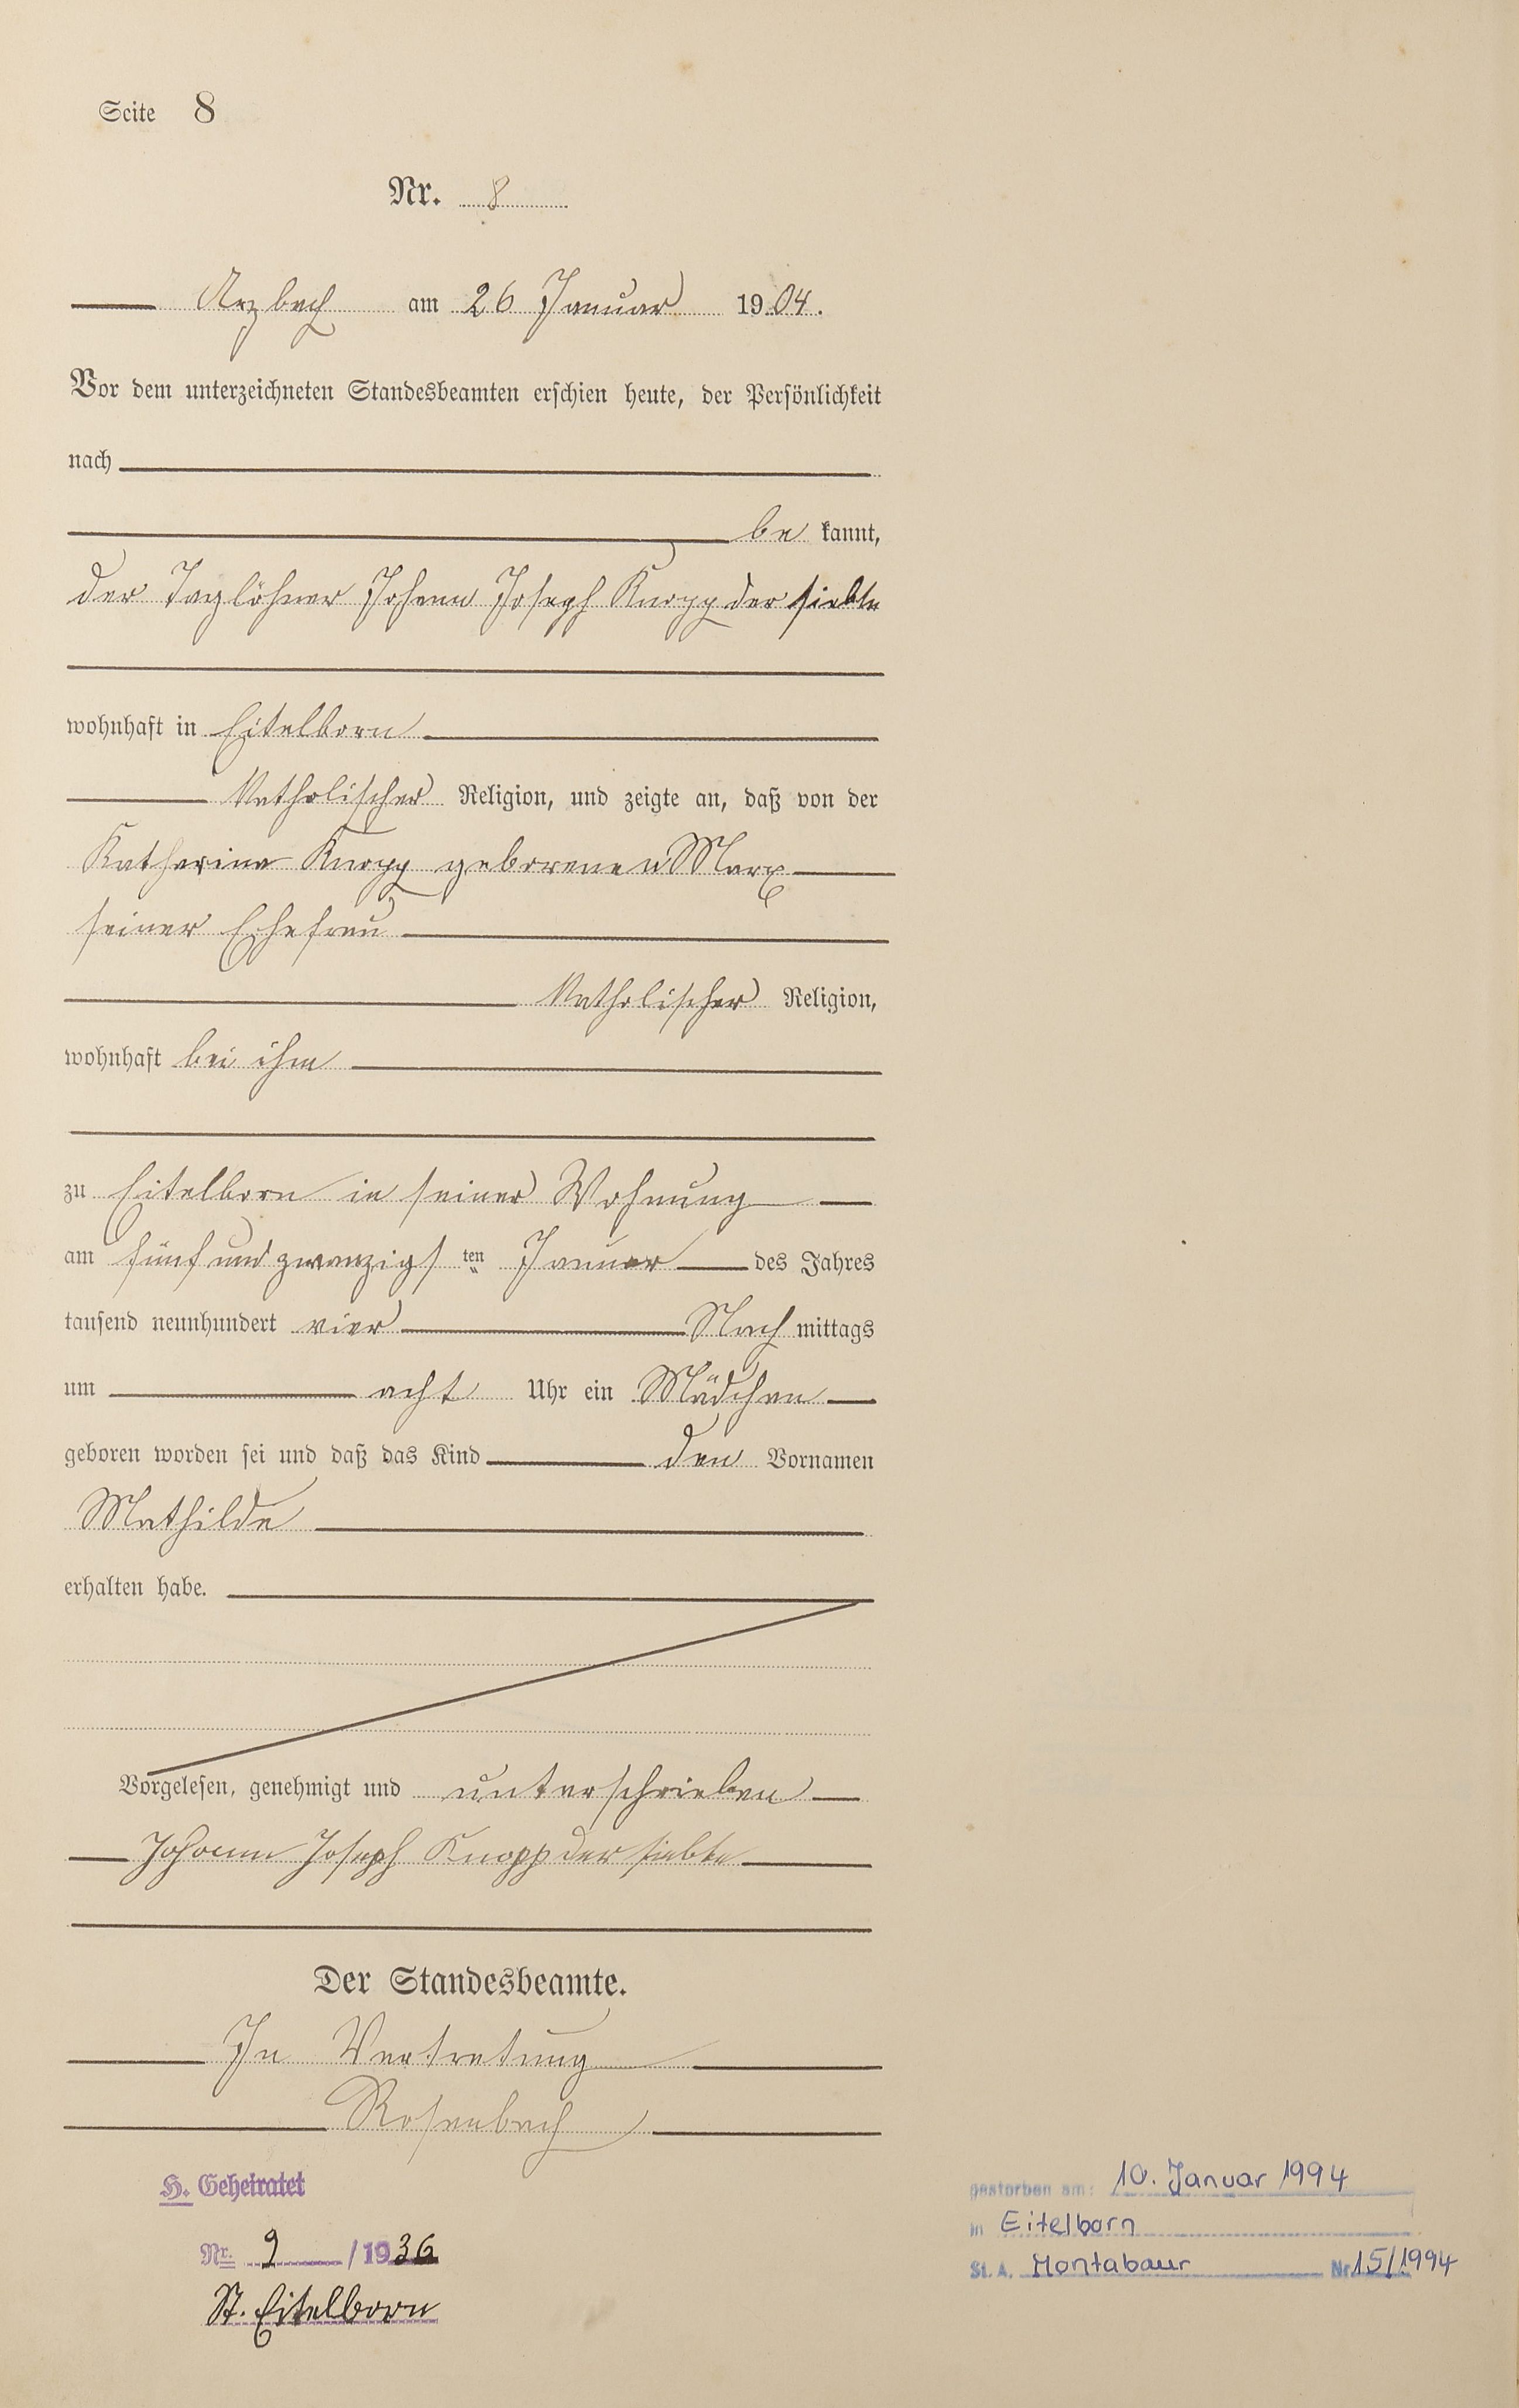 Seite 8
Nr. 8
Arzbach am 26 Januar 1904.
Vor dem unterzeichneten Standesbeamten erschien heute, der Persönlichkeit
nach
be kannt,
der Taglöhner Johann Joseph Knopp der siebte
wohnhaft in Eitelborn
Katholischer Religion, und zeigte an, daß von der
Katharina Knopp geborenen Marx
seiner Ehefrau
Katholischer Religion,
wohnhaft bei ihm
zu Eitelborn in seiner Wohnung
am fünf und zwanzigsten Januar des Jahres
tausend neunhundert vier Nach mittags
um acht Uhr ein Mädchen
geboren worden sei und daß das Kind den Vornamen
Mathilde
erhalten habe.
Vorgelesen, genehmigt und unterschrieben
Johann Joseph Knopp der siebte
Der Standesbeamte.
In Vertretung
Rosenbach
H. Geheiratet
Nr. 9 / 1936
St. Eitelborn
gestorben am: 10. Januar 1994
in Eitelborn
St. A. Montabaur Nr. 15/1994